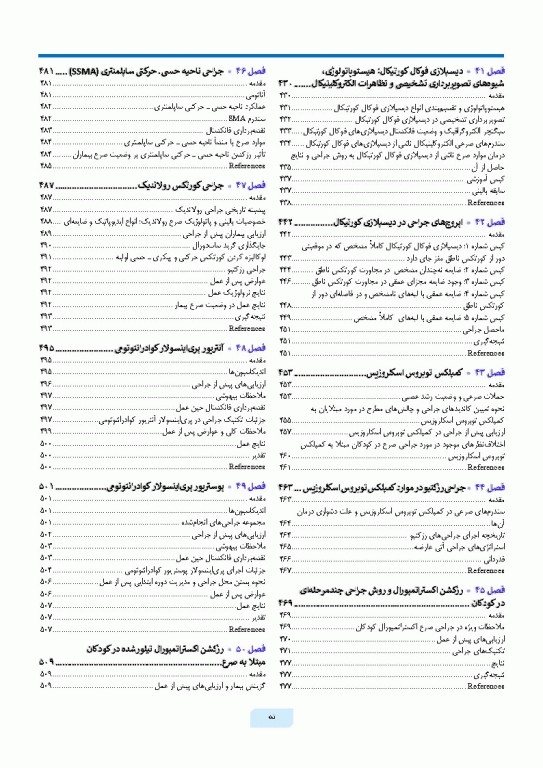 فصل ۴۱ • دیسپلازی فوکال کورتیکال: هیستوپاتولوژی،
شیوه‌های تصویربرداری تشخیصی و تظاهرات الکتروکلینیکال ....... ۴۳۰
مقدمه ....... ۴۳۰
هیستوپاتولوژی و تقسیم‌بندی انواع دیسپلازی فوکال کورتیکال ....... ۴۳۱
تصویربرداری تشخیصی در دیسپلازی فوکال کورتیکال ....... ۴۳۲
سیگنچر الکتروگرافیک و وضعیت فانکشنال دیسپلازی‌های فوکال کورتیکال ....... ۴۳۳
سندرم‌های صرعی الکتروکلینیکال ناشی از دیسپلازی‌های فوکال کورتیکال ....... ۴۳۴
درمان موارد صرع ناشی از دیسپلازی فوکال کورتیکال به روش جراحی و نتایج
حاصل از آن ....... ۴۳۵
کیس آموزشی ....... ۴۳۷
سابقه بالینی ....... ۴۳۷
References ....... ۴۳۸
فصل ۴۲ • اپروچ‌های جراحی در دیسپلازی کورتیکال ....... ۴۴۲
مقدمه ....... ۴۴۲
کیس شماره ۱: دیسپلازی فوکال کورتیکال کاملاً مشخص که در موقعیتی
دور از کورتکس ناطق مغز جای دارد ....... ۴۴۳
کیس شماره ۲: ضایعه نه‌چندان مشخص در مجاورت کورتکس ناطق ....... ۴۴۴
کیس شماره ۳: وجود ضایعه مجزای عمقی در مجاورت کورتکس ناطق ....... ۴۴۶
کیس شماره ۴: ضایعه عمقی با لبه‌های نامشخص و در فاصله‌ای دور از
کورتکس ناطق ....... ۴۴۸
کیس شماره ۵: ضایعه عمقی با لبه‌های کاملاً مشخص ....... ۴۴۹
ماحصل جراحی ....... ۴۵۱
نتیجه‌گیری ....... ۴۵۱
References ....... ۴۵۱
فصل ۴۳ • کمپلکس توبروس اسکلروزیس ....... ۴۵۳
مقدمه ....... ۴۵۳
حملات صرعی و وضعیت رشد عصبی ....... ۴۵۳
نحوه تعیین کاندیدهای جراحی و چالش‌های مطرح در مورد مبتلایان به
کمپلکس توبروس اسکلروزیس ....... ۴۵۵
ارزیابی پیش از جراحی در کمپلکس توبروس اسکلروزیس ....... ۴۵۷
اختلاف‌نظرهای موجود در مورد جراحی صرع در کودکان مبتلا به کمپلکس
توبروس اسکلروزیس ....... ۴۶۰
References ....... ۴۶۱
فصل ۴۴ • جراحی رزکتیو در موارد: کمپلکس توبروس اسکلروزیس ... ۴۶۳
مقدمه ....... ۴۶۳
سندرم‌های صرعی در کمپلکس توبروس اسکلروزیس و علت دشواری درمان
آن‌ها ....... ۴۶۴
تاریخچه اجرای جراحی‌های رزکتیو ....... ۴۶۴
استراتژی‌های جراحی آتی عارضه ....... ۴۶۵
قدردانی ....... ۴۶۶
References ....... ۴۶۷
فصل ۴۵ • رزکشن اکستراتمپورال و روش جراحی چندمرحله‌ای
در کودکان ....... ۴۶۹
مقدمه ....... ۴۶۹
ملاحظات ویژه در جراحی صرع اکستراتمپورال کودکان ....... ۴۶۹
ارزیابی‌های پیش از عمل ....... ۴۷۰
تکنیک‌های جراحی ....... ۴۷۱
نتایج ....... ۴۷۷
نتیجه‌گیری ....... ۴۷۷
References ....... ۴۷۷
فصل ۴۶ • جراحی ناحیه حسی ـ حرکتی ساپلمنتری (SSMA) ..... ۴۸۱
مقدمه ....... ۴۸۱
آناتومی ....... ۴۸۱
عملکرد ناحیه حسی ـ حرکتی ساپلمنتری ....... ۴۸۲
سندرم SMA ....... ۴۸۲
نقشه‌برداری فانکشنال ....... ۴۸۳
موارد صرع با منشأ ناحیه حسی ـ حرکتی ساپلمنتری ....... ۴۸۴
تأثیر رزکشن ناحیه حسی ـ حرکتی ساپلمنتری بر وضعیت صرع بیماران ....... ۴۸۴
References ....... ۴۸۵
فصل ۴۷ • جراحی کورتکس رولاندیک ....... ۴۸۷
مقدمه ....... ۴۸۷
پیشینه تاریخی جراحی رولاندیک ....... ۴۸۷
خصوصیات بالینی و پاتولوژیک صرع رولاندیک: انواع ایدیوپاتیک و ضایعه‌ای ....... ۴۸۸
ارزیابی بیماران پیش از جراحی ....... ۴۸۹
جایگذاری گرید ساب‌دورال ....... ۴۹۰
لوکالیزه کردن کورتکس حرکتی و پیکری ـ حسی اولیه ....... ۴۹۱
جراحی رزکتیو ....... ۴۹۲
عوارض پس از عمل ....... ۴۹۲
نتایج نرولوژیک عمل ....... ۴۹۲
نتایج عمل در وضعیت صرع بیمار ....... ۴۹۲
نتیجه‌گیری ....... ۴۹۳
References ....... ۴۹۳
فصل ۴۸ • آنتریور پری‌اینسولار کوادرانتوتومی ....... ۴۹۵
مقدمه ....... ۴۹۵
اندیکاسیون‌ها ....... ۴۹۵
ارزیابی‌های پیش از جراحی ....... ۴۹۶
ملاحظات بیهوشی ....... ۴۹۷
نقشه‌برداری فانکشنال حین عمل ....... ۴۹۷
جزئیات تکنیک جراحی در پری‌اینسولار آنتریور کوادرانتوتومی ....... ۴۹۷
ملاحظات کلی و عوارض پس از عمل ....... ۴۹۹
نتایج عمل ....... ۵۰۰
تقدیر ....... ۵۰۰
References ....... ۵۰۰
فصل ۴۹ • پوستریور پری‌اینسولار کوادرانتوتومی ....... ۵۰۱
مقدمه ....... ۵۰۱
اندیکاسیون‌ها ....... ۵۰۱
مجموعه جراحی‌های انجام‌شده ....... ۵۰۱
ارزیابی‌های پیش از جراحی ....... ۵۰۲
ملاحظات بیهوشی ....... ۵۰۳
نقشه‌برداری فانکشنال حین عمل ....... ۵۰۳
جزئیات اجرای پری‌اینسولار پوستریور کوادرانتوتومی ....... ۵۰۴
نحوه بستن محل جراحی و مدیریت دوره ابتدایی پس از عمل ....... ۵۰۶
عوارض پس از عمل ....... ۵۰۶
نتایج عمل ....... ۵۰۷
تقدیر ....... ۵۰۷
References ....... ۵۰۷
فصل ۵۰ • رزکشن اکستراتمپورال تیلورشده در کودکان
مبتلا به صرع ....... ۵۰۹
مقدمه ....... ۵۰۹
گزینش بیمار و ارزیابی‌های پیش از عمل ....... ۵۰۹